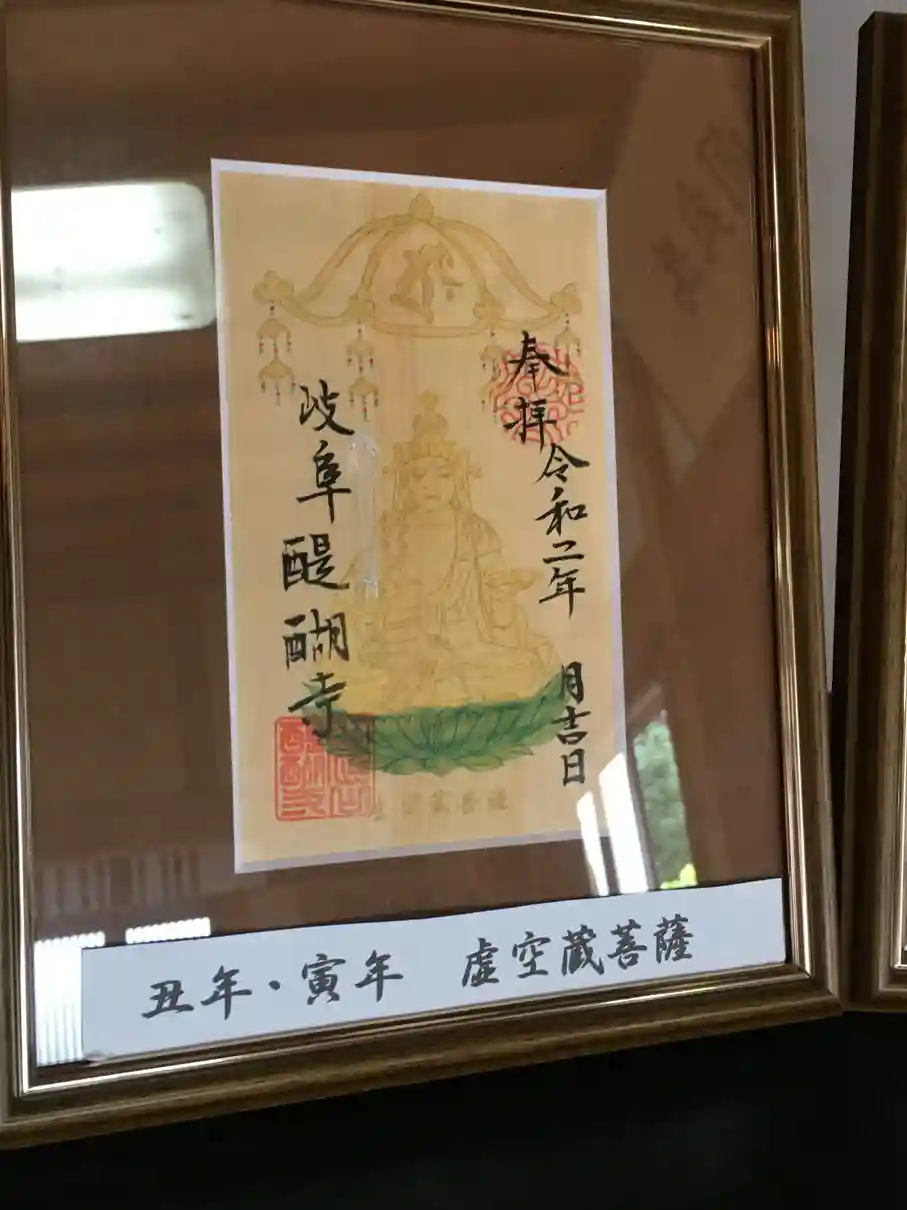 奉拝
令和二年　月吉日
岐阜醍醐寺
丑年・寅年　虚空蔵菩薩